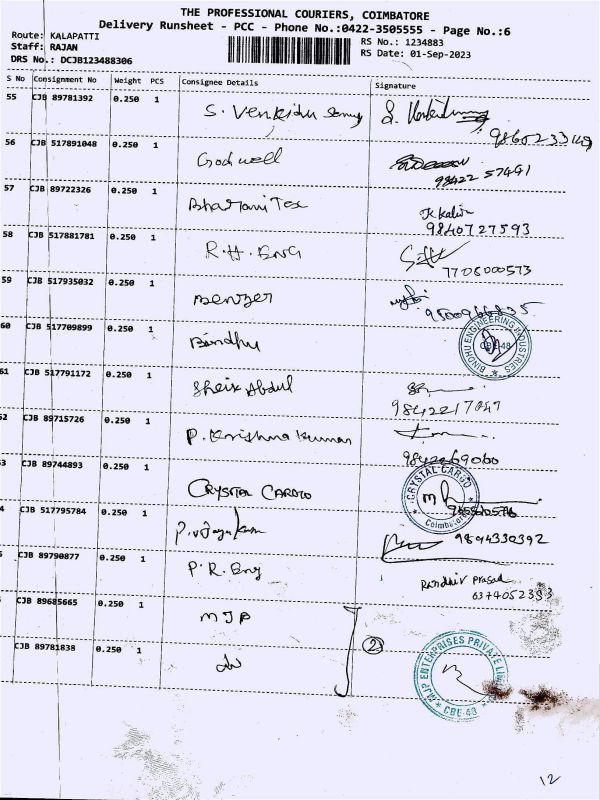 THE PROFESSIONAL COURIERS, COIMBATORE
Delivery Runsheet - PCC - Phone No.:0422-3505555 - Page No.:6
Route: KALAPATTI
Staff: RAJAN
DRS No.: DCJB123488306
RS No.: 1234883
RS Date: 01-Sep-2023
S No Consignment No Weight PCS Consignee Details Signature
55 CJB 89781392 0.250 1 S. Venkidu Samy
56 CJB 517891048 0.250 1 Godwell
98422 57491
57 CJB 89722326 0.250 1 Bharani Tex
9840727593
58 CJB 517881781 0.250 1 R.H. Eng
7708000573
59 CJB 517935032 0.250 1
60 CJB 517709899 0.250 1 Bindhu
BINDHU ENGINEERING INDUSTRIES
CBE-48
61 CJB 517791172 0.250 1 Sheik Abdul
9842217047
62 CJB 89715726 0.250 1 P. Krishna Kumar
9842269060
63 CJB 89744893 0.250 1 CRYSTAL CARGO
CRYSTAL CARGO
Coimbatore
4 CJB 517795784 0.250 1 P. vijayakumar
9894330392
CJB 89790877 0.250 1 P.R. Eng
Randhir Prasad
6374052393
CJB 89685665 0.250 1 MJP
2
CJB 89781838 0.250 1 do
MJP ENTERPRISES PRIVATE LIM
CBE-48
12